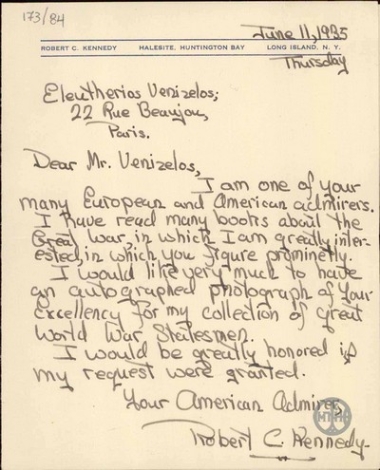 173/84
June 11, 1935
ROBERT C. KENNEDY HALESITE, HUNTINGTON BAY LONG ISLAND, N. Y.
Thursday
Eleutherios Venizelos;
22 Rue Beaujou,
Paris.
Dear Mr. Venizelos,
I am one of your
many European and American admirers.
I have read many books about the
Great War, in which I am greatly inter-
ested, in which you figure prominetly.
I would like very much to have
an autographed photograph of Your
Excellency for my collection of great
World War Statesmen.
I would be greatly honored if
my request were granted.
Your American Admirer,
Robert C. Kennedy